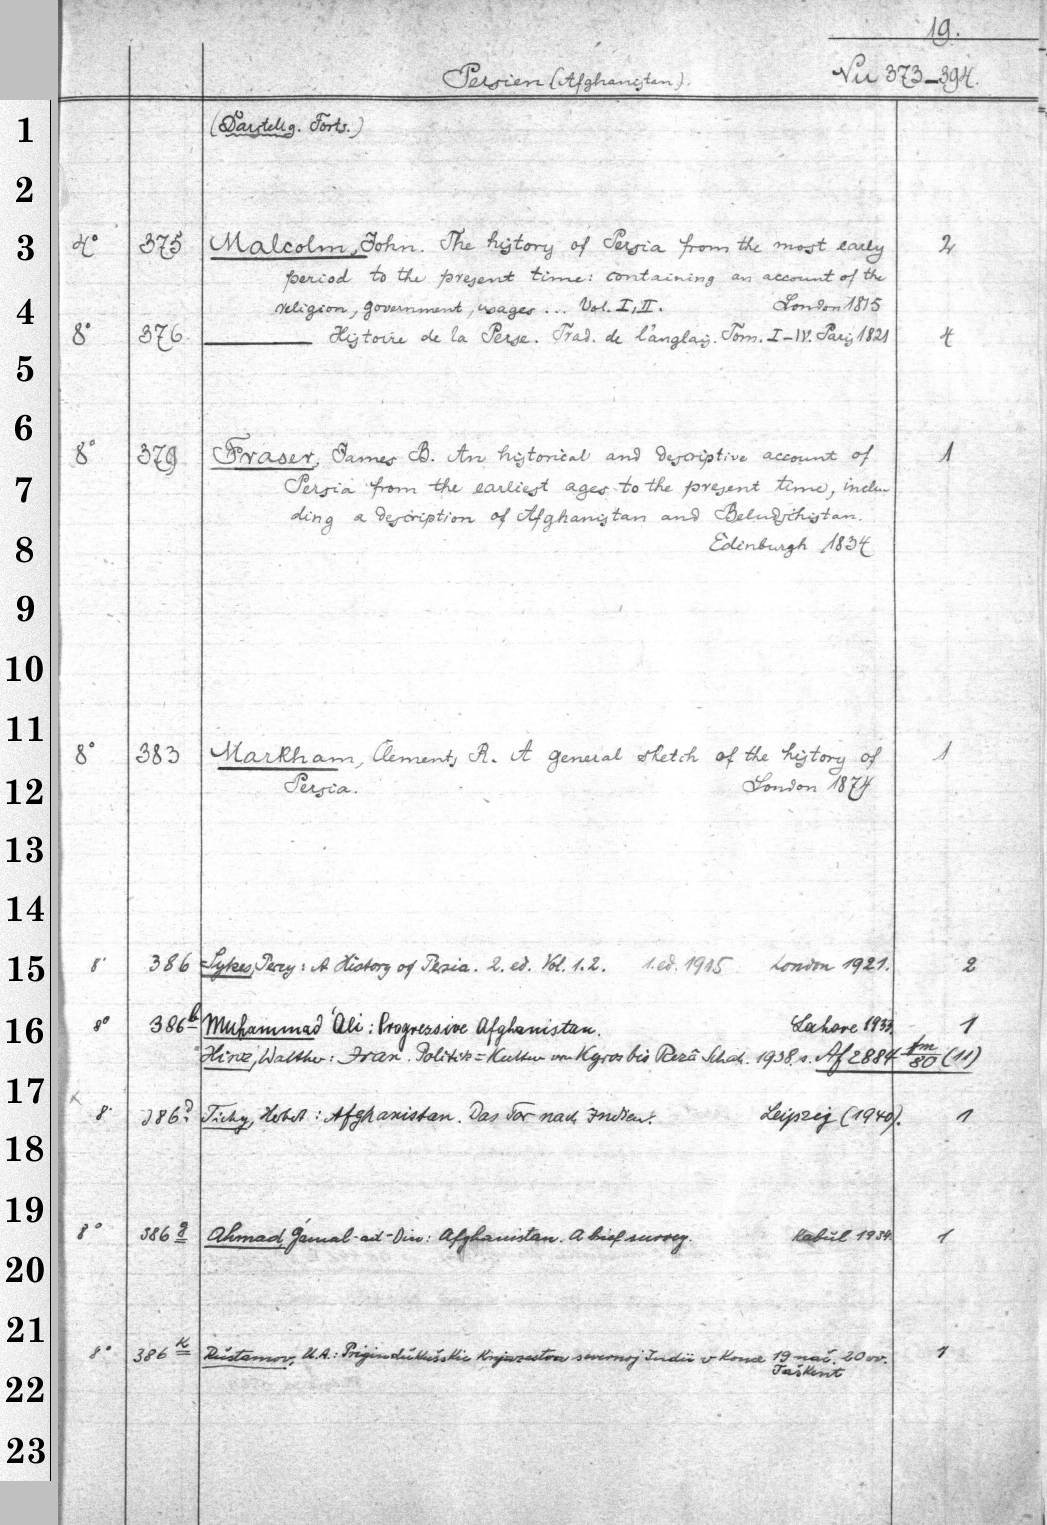 19.
Persien (Afghanistan). Nu 373-394.
1 (Darstellg. Forts.)
2
3 4° 375 Malcolm, John. The history of Persia from the most early 2
period to the present time: containing an account of the
4 religion, government, usages ... Vol. I, II. London 1815
8° 376 ——— Histoire de la Perse. Trad. de l'anglais. Tom. I-IV. Paris 1821 4
5
6
8° 379 Fraser, James B. An historical and descriptive account of 1
7 Persia from the earliest ages to the present time, inclu-
ding a description of Afghanistan and Beludschistan.
8 Edinburgh 1834
9
10
11
8° 383 Markham, Clements R. A general sketch of the history of 1
12 Persia. London 1874
13
14
15 8° 386 Sykes, Percy: A History of Persia. 2. ed. Vol. 1.2. 1. ed. 1915 London 1921. 2
16 8° 386b Muhammad 'Ali: Progressive Afghanistan. Lahore 1933. 1
Hinz, Walther: Iran. Politik = Kultur von Kyros bis Rezâ Schah. 1938. s. Af 2884 fm/80 (11)
17
8° 386d Tichy, Herbert: Afghanistan. Das Tor nach Indien. Leipzig (1940). 1
18
19
8° 386g Ahmad, Ǵamal-ad-Din: Afghanistan. A brief survey. Kabūl 1934. 1
20
21
8° 386k Rustamov, U.A.: Prigindukušskie Knjažestva severnoj Indii v Konce 19 nač. 20 vv. 1
22 Taškent
23